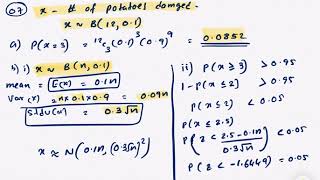 07 x - # of potatoes damged.
x ~ B(12, 0.1)
a) P(x=3) = ¹²C₃ (0.1)³ (0.9)⁹ = 0.0852
b) i) x ~ B(n, 0.1)
mean = E(x) = 0.1n
Var(x) = n×0.1×0.9 = 0.09n
Stdv(x) = 0.3√n
x ≈ N(0.1n, (0.3√n)²)
ii) P(x ≥ 3) > 0.95
1 - P(x ≤ 2) > 0.95
P(x ≤ 2) < 0.05
P(x ≤ 2.5)
P(z < (2.5 - 0.1n)/(0.3√n)) < 0.05
P(z < -1.6449) = 0.05